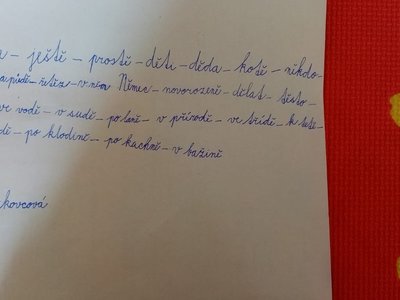 – ještě – prostě – děti – děda – kotě – někdo –
a půdě – řetěz – v něm Němec – novorozeně – dělat – těsto –
ve vodě – v sudě – po tmě – v přírodě – ve třídě – k tetě –
dě – po hlodině – po kachně – v bažině
kovcová